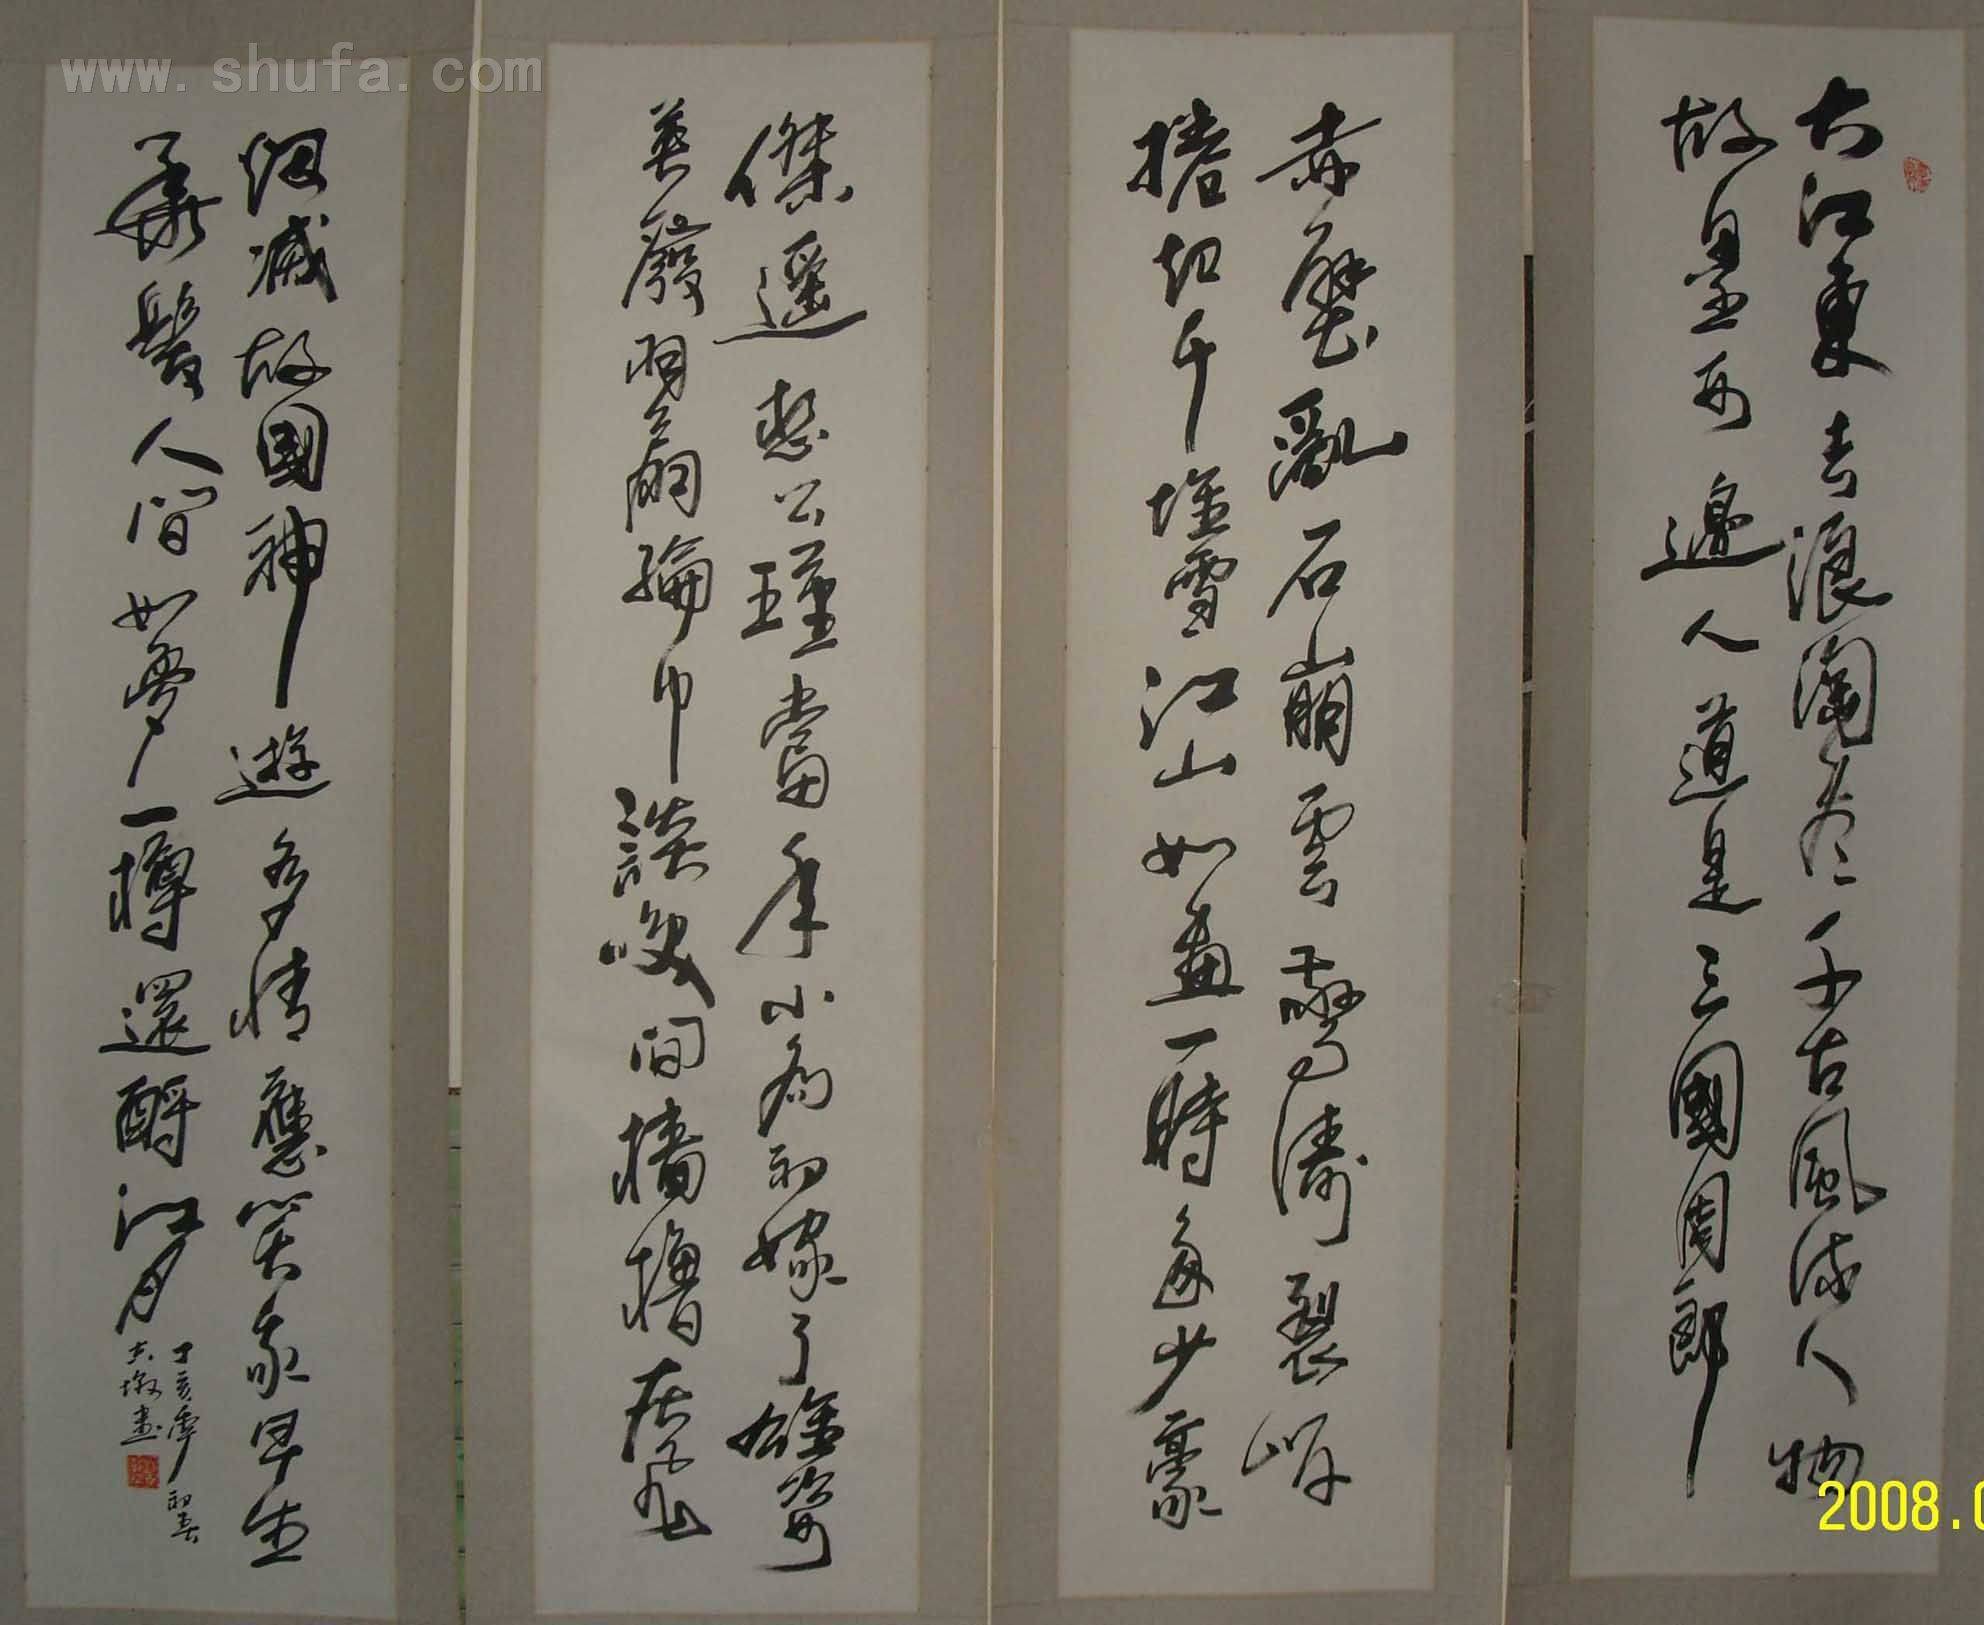 www.shufa.com
大江東去浪淘尽千古風流人物
故壘西邊人道是三國周郎
赤壁亂石崩雲驚濤裂岸
捲起千堆雪江山如畫一時多少豪
傑遙想公瑾當年小喬初嫁了雄姿
英發羽扇綸巾談咲間檣櫓灰飛
烟滅故國神遊多情應笑我早生
華髮人間如夢一樽還酹江月
丁亥年初春
2008.0